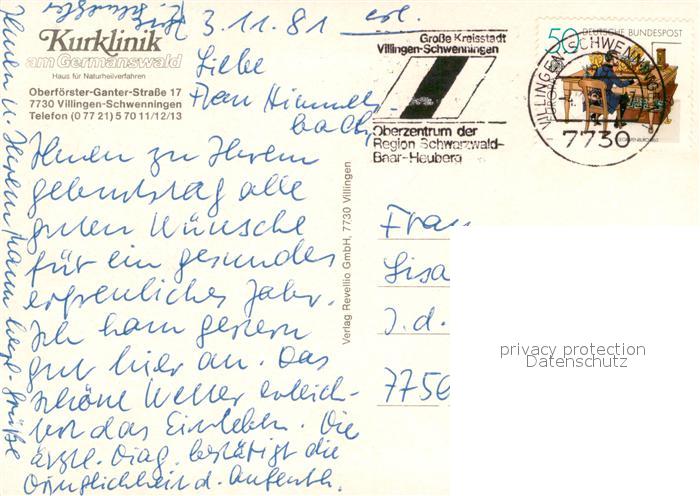 Kurklinik
am Germanswald
Haus für Naturheilverfahren
Oberförster-Ganter-Straße 17
7730 Villingen-Schwenningen
Telefon (0 77 21) 5 70 11/12/13
3.11.81
Große Kreisstadt
Villingen-Schwenningen
Oberzentrum der
Region Schwarzwald-
Baar-Heuberg
50 DEUTSCHE BUNDESPOST
VILLINGEN-SCHWENNINGEN
7730
Liebe
Frau Himmels-
bach,
Ihnen zu Ihrem
Geburtstag alle
guten Wünsche
für ein gesundes
erfreuliches Jahr.
Ich kam gestern
gut hier an. Das
schöne Wetter erleich-
tert das Einleben. Die
ärztl. Diag. bestätigt die
Dringlichkeit d. Aufenth.
Ihnen u. Ihrem Mann herzl. Grüße
Verlag Revellio GmbH, 7730 Villingen
Frau
Lisa
J. d.
7750
privacy protection
Datenschutz